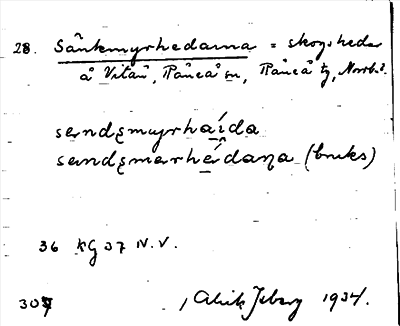 28. Sänkmyrhedarna = skogshedar
å Vitån, Råneå sn, Råneå tg, Norrb.
sændɛmyrhaída
sændɛmærhédaɳa (bruks)
36 KG 37 N.V.
307 Alrik Isberg 1934.